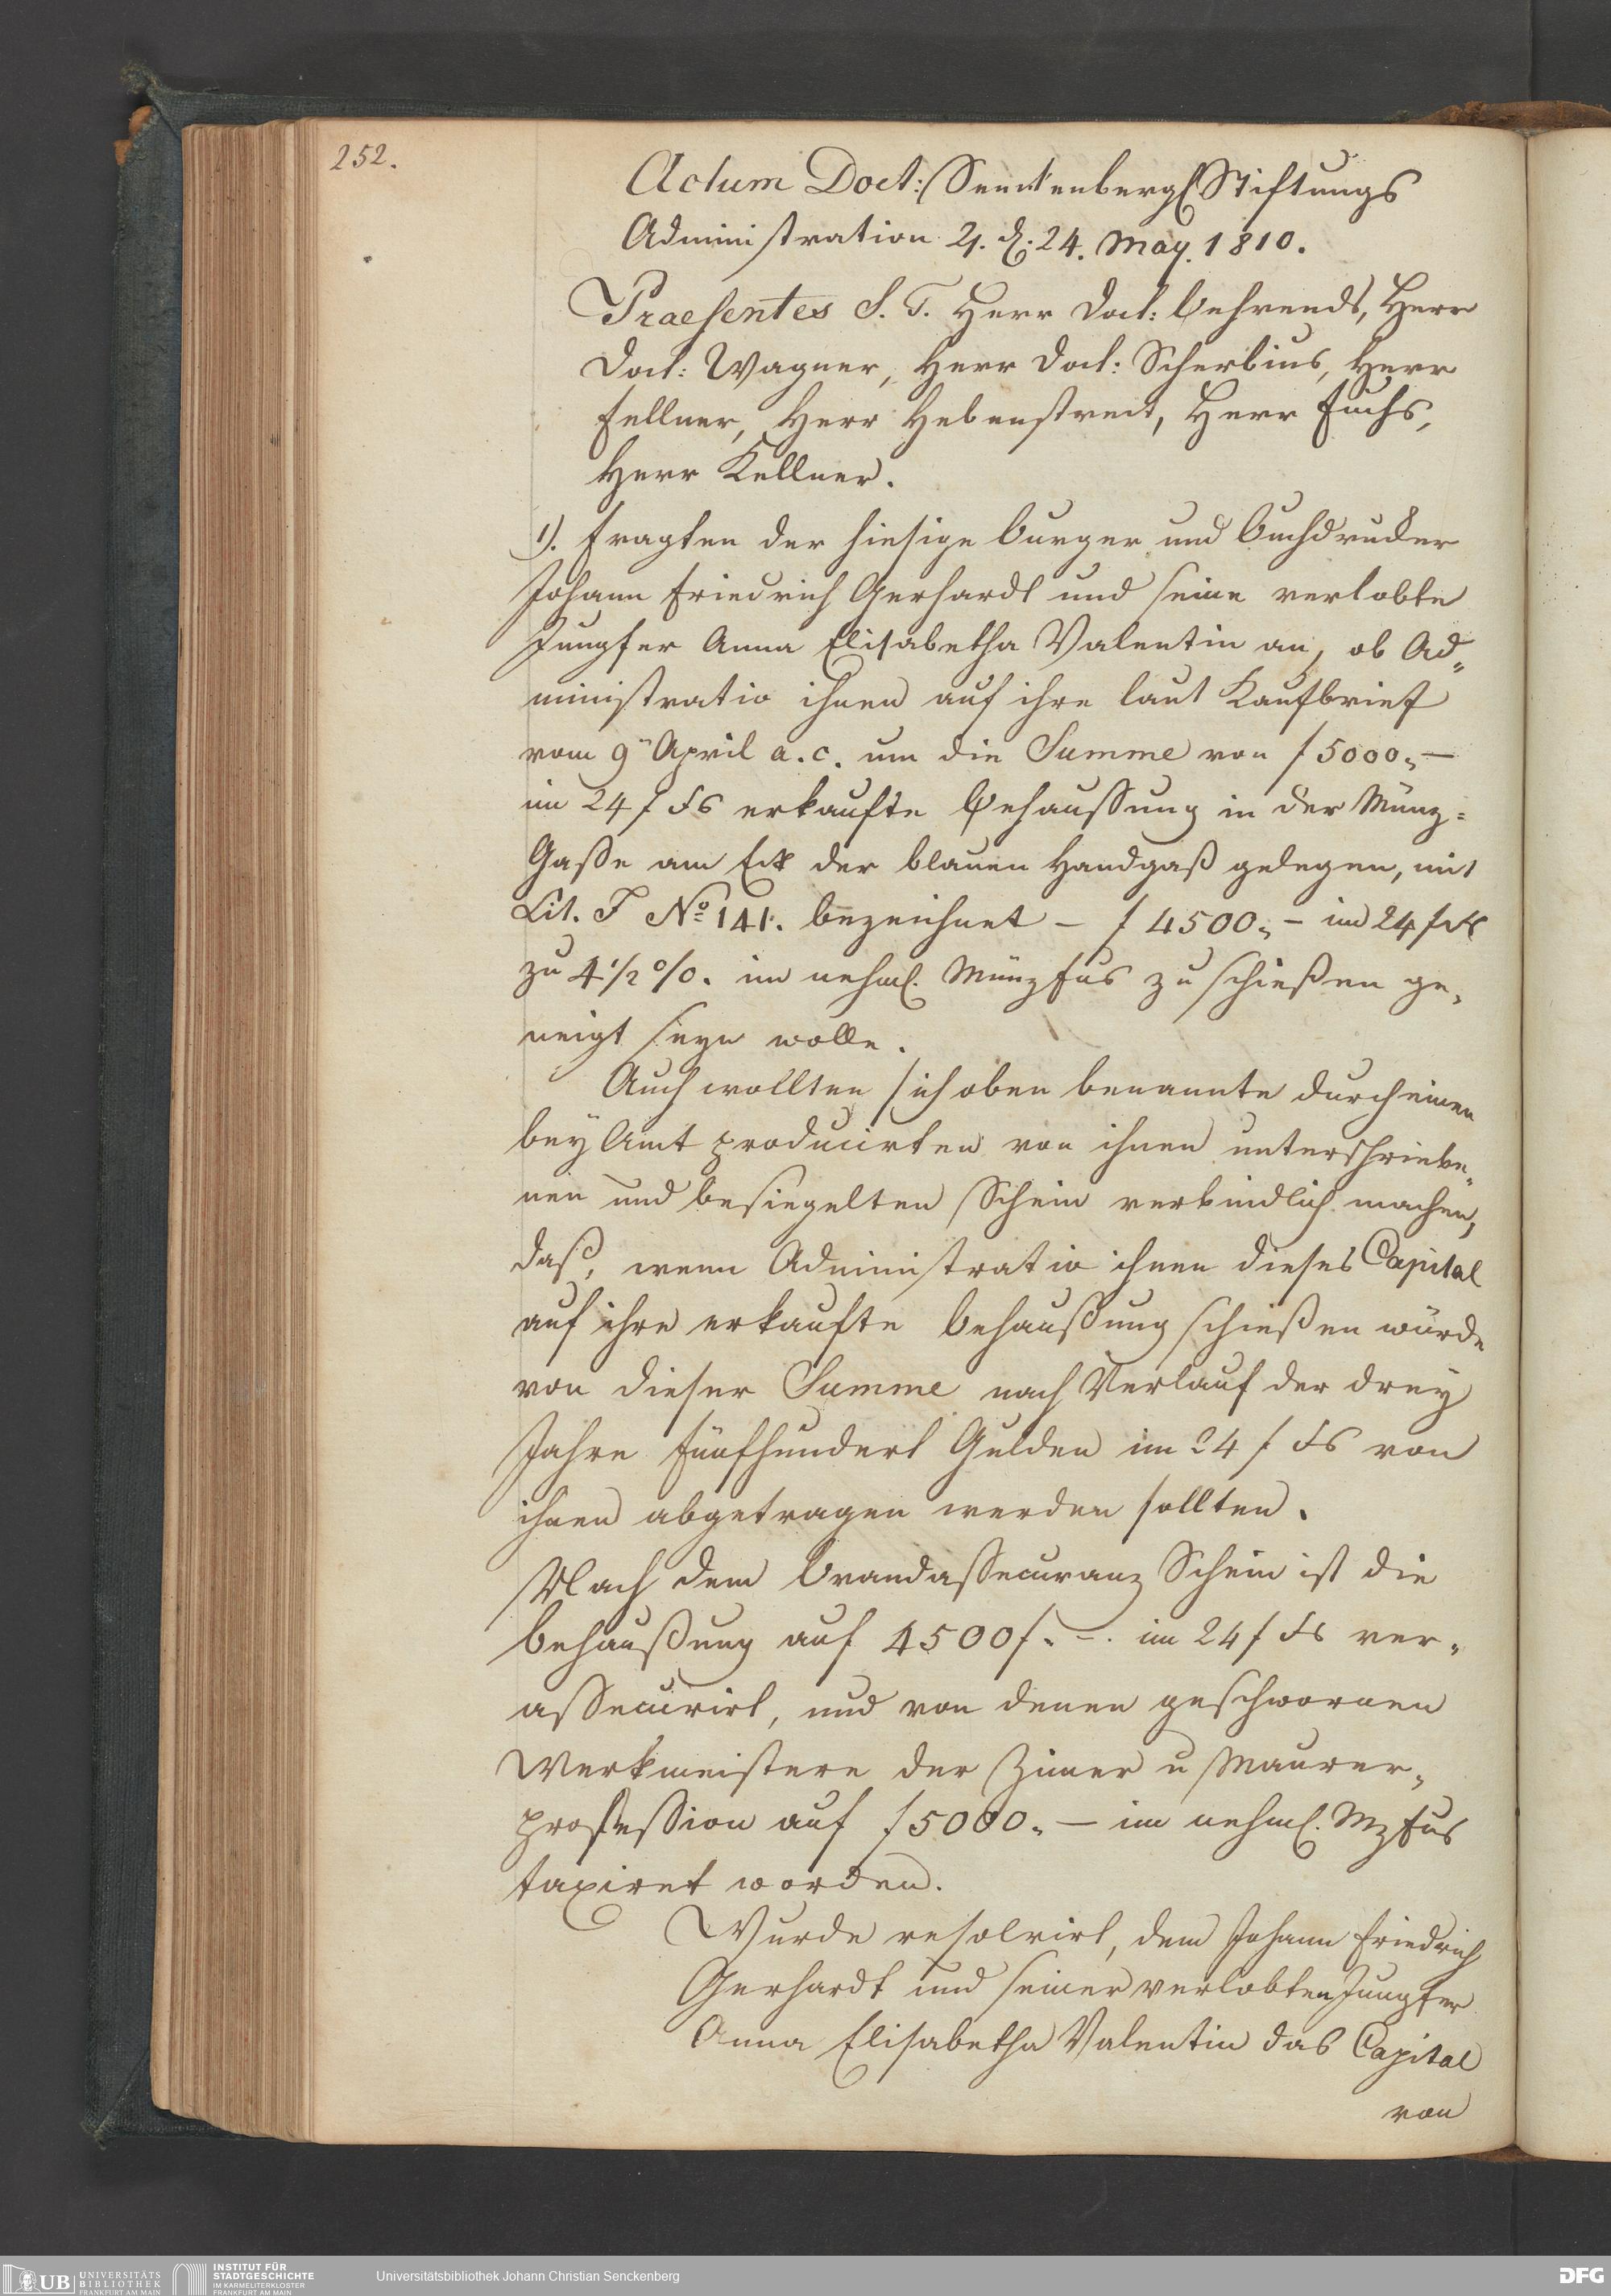 252.
Actum Doct: Senckenbergl Stiftungs
Administration 4. d. 24. May. 1810.
Praesentes S. T. Herr Doct: Behrends, Herr
Doct: Wagner, Herr Doct: Scherbius, Herr
Fellner, Herr Hebenstreit, Herr Fuchs,
Herr Kellner.
1). fragten der hiesige burger und buchdrucker
Johann Friedrich Gerhardt und seine verlobte
Jungfer Anna Elisabetha Valentin an, ob Ad„
ministratio ihnen auf ihre laut Kaufbrief
vom 9n April a. c. um die Summe von f 5000„ —
im 24 f Fs erkaufte Behaussung in der Münz=
Gasse am Eck der blauen Handgaß gelegen, mit
Lit. J No 141. bezeichnet — f 4500„ — im 24 f Fs
zu 4 1/2 %. im nehml. Münzfus zu schießen ge„
neigt seyn wolle.
Auch wollten sich oben benannte durch einen
bey Amt producirten von ihnen unterschriebe„
nen und besiegelten Schein verbindlich machen,
daß, wenn Administratio ihnen dieses Capital
auf ihre erkaufte behaußung schießen würde
von dieser Summe nach Verlauf der drey
Jahre fünfhundert Gulden im 24 f Fs von
ihnen abgetragen werden sollten.
Nach dem Brandassecuranz Schein ist die
behaußung auf 4500 f. —. im 24 f Fs ver„
assecurirt, und von denen geschwornen
Werkmeistere der Zimer u Maurer„
profession auf f 5000„ — im nehml. Mzfus
taxiret worden.
Wurde resolvirt, dem Johann Friedrich
Gerhardt und seiner verlobten Jungfer
Anna Elisabetha Valentin das Capital
von
UB UNIVERSITÄTS BIBLIOTHEK FRANKFURT AM MAIN
INSTITUT FÜR STADTGESCHICHTE IM KARMELITERKLOSTER FRANKFURT AM MAIN
Universitätsbibliothek Johann Christian Senckenberg
DFG